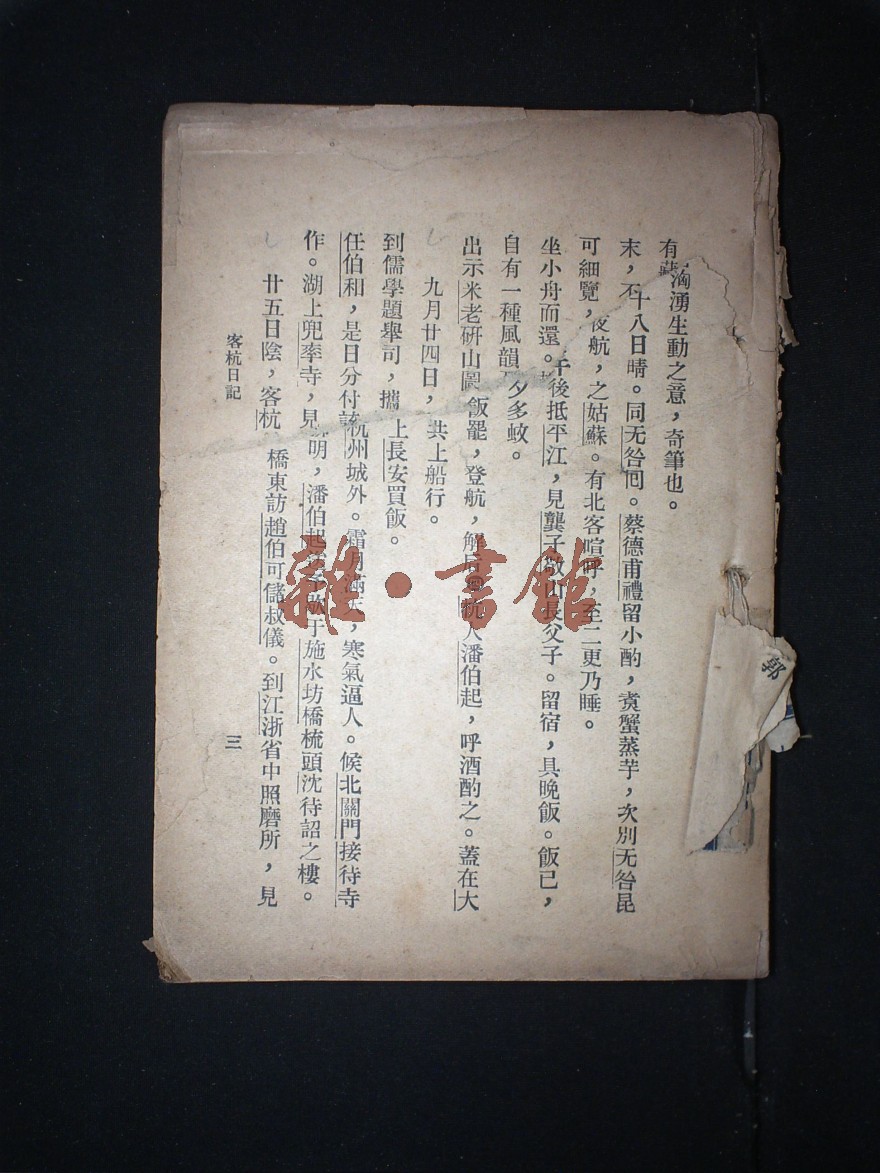 有洶湧生動之意，奇筆也。
末，不十八日晴。同无咎囘。蔡德甫禮留小酌，煑蟹蒸芋，次別无咎昆
可細覽，夜航，之姑蘇。有北客喧呼，至二更乃睡。
坐小舟而還。午後抵平江，見龔子敬山長父子。留宿，具晚飯。飯已，
自有一種風韻夕多蚊。
出示米老硏山圖飯罷，登航，解后杭人潘伯起，呼酒酌之。蓋在大
九月廿四日，共上船行。
到儒學題舉司，攜上長安買飯。
任伯和，是日分付杭州城外。霜月滿天，寒氣逼人。候北關門接待寺
作。湖上兜率寺，見明，潘伯起予歇于施水坊橋梳頭沈待詔之樓。
廿五日陰，客杭橋東訪趙伯可儲叔儀。到江浙省中照磨所，見
客杭日記
三
郭
雜·書館